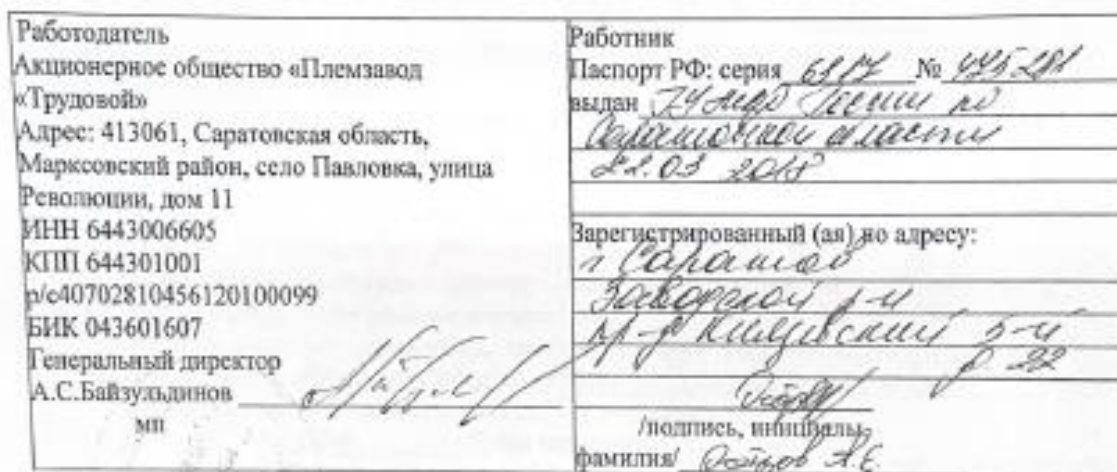 Работодатель
Акционерное общество «Племзавод
«Трудовой»
Адрес: 413061, Саратовская область,
Марксовский район, село Павловка, улица
Революции, дом 11
ИНН 6443006605
КПП 644301001
р/с40702810456120100099
БИК 043601607
Генеральный директор
А.С.Байзульдинов
мп
Работник
Паспорт РФ: серия 6317 № 475281
выдан ГУ МВД России по
Саратовской области
22.03 2018
Зарегистрированный (ая) по адресу:
г Саратов
Заводской р-н
пр-д 5-й
д 22
/подпись, инициалы,
фамилия/ А.Е